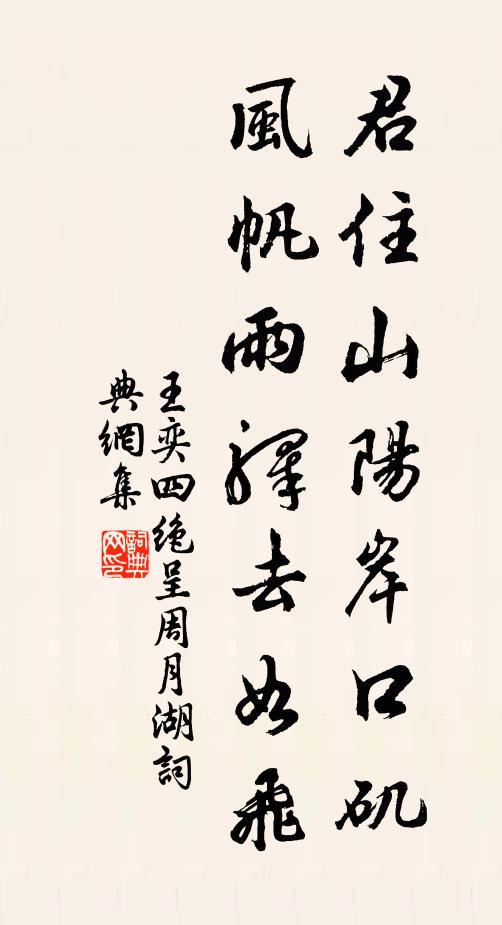 君住山陽岸口矶
風帆雨驛去如飛
王奕四绝呈周月湖詞
典網集
詞典
网印